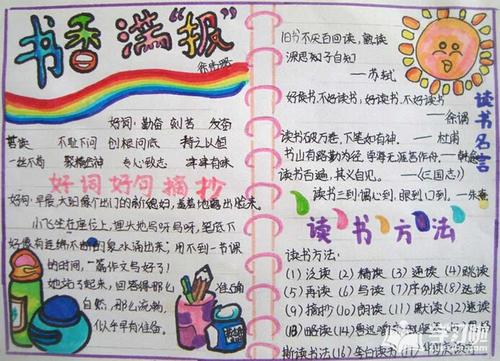 书香满“报”
好词：勤奋 刻苦 发奋
苦读 不耻下问 刨根问底 持之以恒
一丝不苟 聚精会神 专心致志 津津有味
好词好句摘抄
好句：早晨，大班像个出门的新媳妇，羞羞地露出脸来。
小飞坐在座位上，埋头地写呀写呀，笔底下
好像有连绵不断的泉水涌出来，用不到一节课
的时间，一篇作文写好了！
她站了起来，回答得那么准确
自然，那么流畅，
似乎早有准备。
旧书不厌百回读，熟读
深思子自知
——苏轼
好读书，不好读书；好读书，不好读书
——徐渭
读书破万卷，下笔如有神。——杜甫
书山有路勤为径，学海无涯苦作舟。——韩愈
读书百遍，其义自见。——《三国志》
读书三到：心到、眼到、口到。——朱熹
读书名言
读书方法
读书方法：
(1) 泛读 (2) 精读 (3) 通读 (4) 跳读
(5) 再读 (6) 写读 (7) 序例读 (8) 选读
(9) 摘抄 (10) 朗读 (11) 默读 (12) 速读
(13) 略读
断读书法 (16)